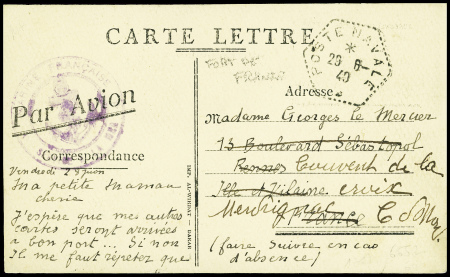 CARTE LETTRE
FORT DE
FRANCE
POSTE NAVALE
*
29 6
40
Par Avion
Adresse
Correspondance
IMP. AL-WOHDAT - DAKAR
Madame Georges le Mercier
13 Boulevard Sébastopol
Rennes Couvent de la
Ille et Vilaine croix
Merdrignac France C du N
(faire suivre en cas
d'absence)
Vendredi 28 juin
Ma petite Maman
chérie
J'espère que mes autres
cartes seront arrivées
à bon port... Si non
Il me faut répéter que